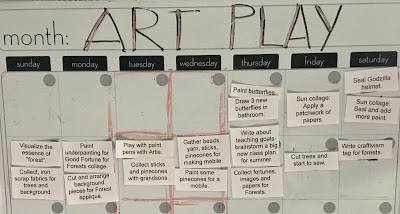 month: ART PLAY
sunday monday tuesday wednesday thursday friday saturday
Paint butterflies.
Draw 3 new
butterflies in
bathroom.
Sun collage:
Apply a
patchwork of
papers.
Seal Godzilla
helmet.
Sun collage:
Seal and add
more paint.
Visualize the
essence of
"forest".
Collect, iron
scrap fabrics for
trees and
background.
Paint
underpainting for
Good Fortune for
Forests collage.
Cut and arrange
background
pieces for Forest
appliqué.
Play with paint
pens with Artie.
Collect sticks
and pinecones
with grandsons.
Gather beads,
yarn, sticks,
pinecones for
making mobile.
Paint some
pinecones for a
mobile.
Write about
teaching goals-
brainstorm a big
new class plan
for summer.
Collect fortunes,
images and
papers for
Forests.
Cut trees and
start to sew.
Write craftivism
tag for forests.